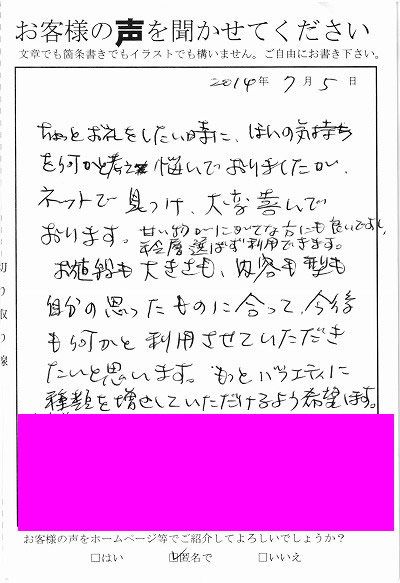 お客様の声を聞かせてください
文章でも箇条書きでもイラストでも構いません。ご自由にお書き下さい。
2014年 7月 5日
ちょっとお礼をしたい時に、ほんの気持ち
を何かと考え悩んでおりましたが、
ネットで見つけ、大変喜んで
おります。甘い物がにがてな方にも良いですし、
年令層選ばず利用できます。
お値段も大きさも、内容も型も
自分の思ったものに合って、今後
も何かと利用させていただき
たいと思います。もっとバラエティに
種類を増やしていただけるよう希望します。
切り取り線
お客様の声をホームページ等でご紹介してよろしいでしょうか？
□はい ☑匿名で □いいえ